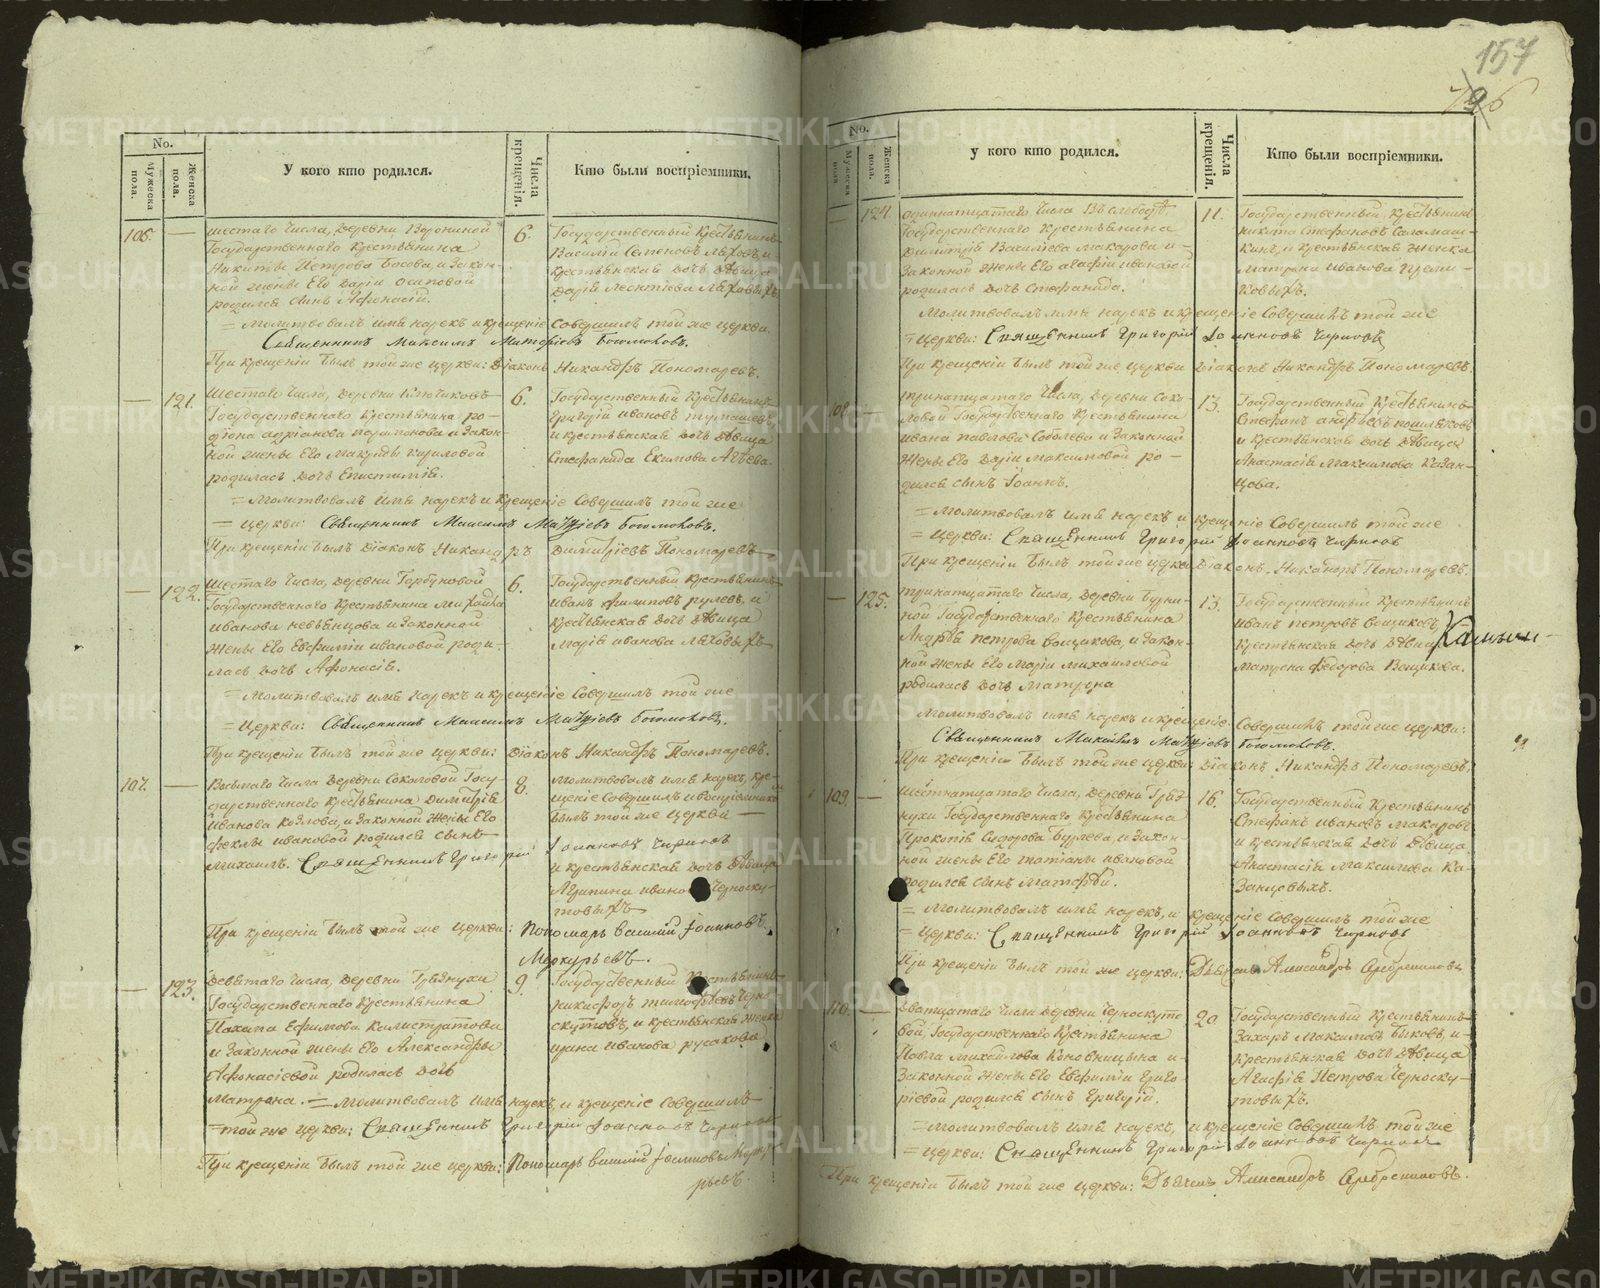 157
796
No.
Мужеска пола.
Женска пола.
У кого кто родился.
Числа крещенія.
Кто были воспріемники.
106.
—
шестаго Числа, деревни Ворониной
Государственнаго Крестьянина
Никиты Петрова Басова, и Закон-
ной жены Его Дарьи Осиповой
родился сынъ Афонасій.
6.
Государственный Крестьянинъ
Василій Семеновъ
и крестьянская дочь девица
Дарія Леонтіева
= молитвовалъ имя нарекъ и крещеніе совершилъ той же церкви
Священникъ Максимъ Матфіевъ Богомоловъ.
При крещеніи былъ той же церкви: Діаконъ Никандръ Пономаревъ.
—
121.
Шестаго Числа, деревни Ключиковъ
Государственнаго Крестьянина ро-
діона Адріанова Парамонова и Закон-
ной жены Его Макриды Кириловой
родилась дочь Епистимія.
6.
Государственный Крестьянинъ
Григорій Ивановъ
и крестьянская дочь девица
Стефанида Екимова
= молитвовалъ имя нарекъ и крещеніе совершилъ той же
= церкви: Священникъ Максимъ Матфіевъ Богомоловъ.
При крещеніи былъ Діаконъ Никандръ Димитріевъ Пономаревъ
—
122.
Шестаго Числа, деревни Горбуновой
Государственнаго Крестьянина Михаила
Иванова и Законной
жены Его Евфиміи Ивановой роди-
лась дочь Афонасія.
6.
Государственный Крестьянинъ
Иванъ Филиповъ Рулевъ, и
крестьянская дочь девица
Марія Иванова
= молитвовалъ имя нарекъ и крещеніе совершилъ той же
= Церкви: Священникъ Максимъ Матфіевъ Богомоловъ.
При крещеніи былъ той же церкви: Діаконъ Никандръ Пономаревъ.
107.
—
Восмаго Числа деревни Соколовой Госу-
дарственнаго крестьянина Димитрія
Иванова Козлова, и Законной жены Его
Феклы Ивановой родился сынъ
Михаилъ. Священникъ Григорій Іоанновъ Черновъ
8.
молитвовалъ имя нарекъ, кре-
щеніе совершилъ и воспріемникомъ
былъ той же церкви —
и крестьянская дочь девица
Агрипина Иванова Черноску-
товыхъ
При крещеніи былъ той же церкви: Пономарь Василій Іоанновъ
Меркурьевъ.
—
123.
Девятаго Числа, деревни Грязнухи
Государственнаго Крестьянина
Пахома Ефимова Калистратова
и Законной жены Его Александры
Афонасіевой родилась дочь
Матрона. = молитвовалъ имя нарекъ, и крещеніе совершилъ
9.
Государственный Крестьянинъ
Никифоръ Тимофеевъ Черно-
скутовъ, и крестьянская женка
Ирина Иванова Русакова
= той же церкви: Священникъ Григорій Іоанновъ Черновъ
При крещеніи былъ той же церкви: Пономарь Василій Іоанновъ Мерку-
рьевъ.
No.
Мужеска пола
Женска пола.
у кого кто родился.
Числа крещенія.
Кто были воспріемники.
—
124.
одиннатцатаго Числа Въ слободе
Государственнаго Крестьянина
Димитрія Василіева Макарова и
Законной жены Его Агафіи Ивановой
родилась дочь Стефанида.
11.
Государственный крестьянинъ
Никита Стефановъ Саламат-
кинъ, и крестьянская женка
Матрона Иванова
молитвовалъ имя нарекъ и крещеніе совершилъ той же
= церкви: Священникъ Григорій Іоанновъ Черновъ
При крещеніи былъ той же церкви Діаконъ Никандръ Пономаревъ.
108.
—
тринатцатаго Числа, деревни Соко-
ловой Государственнаго Крестьянина
Ивана Павлова Соболева и Законной
жены Его Даріи Максимовой ро-
дился сынъ Іоаннъ.
13.
Государственный Крестьянинъ
Стефанъ Андреевъ
и крестьянская дочь девица
Анастасія Максимова Казан-
цова.
= молитвовалъ имя нарекъ и крещеніе совершилъ той же
= церкви: Священникъ Григорій Іоанновъ Черновъ
При крещеніи былъ той же церкви Діаконъ. Никандръ Пономаревъ.
—
125.
тринатцатаго Числа, деревни Бурни-
ной Государственнаго Крестьянина
Андрея Петрова Вощикова, и Закон-
ной жены Его Маріи Михайловой
родилась дочь Матрона
13.
Государственный Крестьянинъ
Иванъ Петровъ Вощиковъ
крестьянская дочь девица
Матрона Федорова Вощикова.
молитвовалъ имя нарекъ и крещеніе совершилъ той же церкви:
Священникъ Максимъ Матфіевъ Богомоловъ.
При крещеніи былъ той же церкви: Діаконъ Никандръ Пономаревъ.
109.
—
шестнатцатаго Числа, деревни Гряз-
нухи Государственнаго Крестьянина
Прокопія Сидорова Бурлева, и Закон-
ной жены Его Татіаны Ивановой
родился сынъ Матфей.
16.
Государственный Крестьянинъ
Стефанъ Ивановъ Макаровъ
и крестьянская дочь девица
Анастасія Максимова Ка-
занцовыхъ.
= молитвовалъ имя нарекъ, и крещеніе совершилъ той же
= церкви: Священникъ Григорій Іоанновъ Черновъ
При крещеніи былъ той же церкви: Дьячекъ Александръ Серебрениковъ
110.
—
Дватцатаго Числа деревни Черноскуто-
вой, Государственнаго Крестьянина
Павла Михайлова Коновницына и
Законной жены Его Евфиміи Григо-
ріевой родился сынъ Григорій.
20
Государственный Крестьянинъ
Захаръ Максимовъ Быковъ, и
крестьянская дочь девица
Агафія Петрова Черноску-
товыхъ.
= молитвовалъ имя нарекъ, и крещеніе совершилъ той же
= церкви: Священникъ Григорій Іоанновъ Черновъ
При крещеніи былъ той же церкви: Дьячекъ Александръ Серебрениковъ.
METRIKI.GASO-URAL.RU